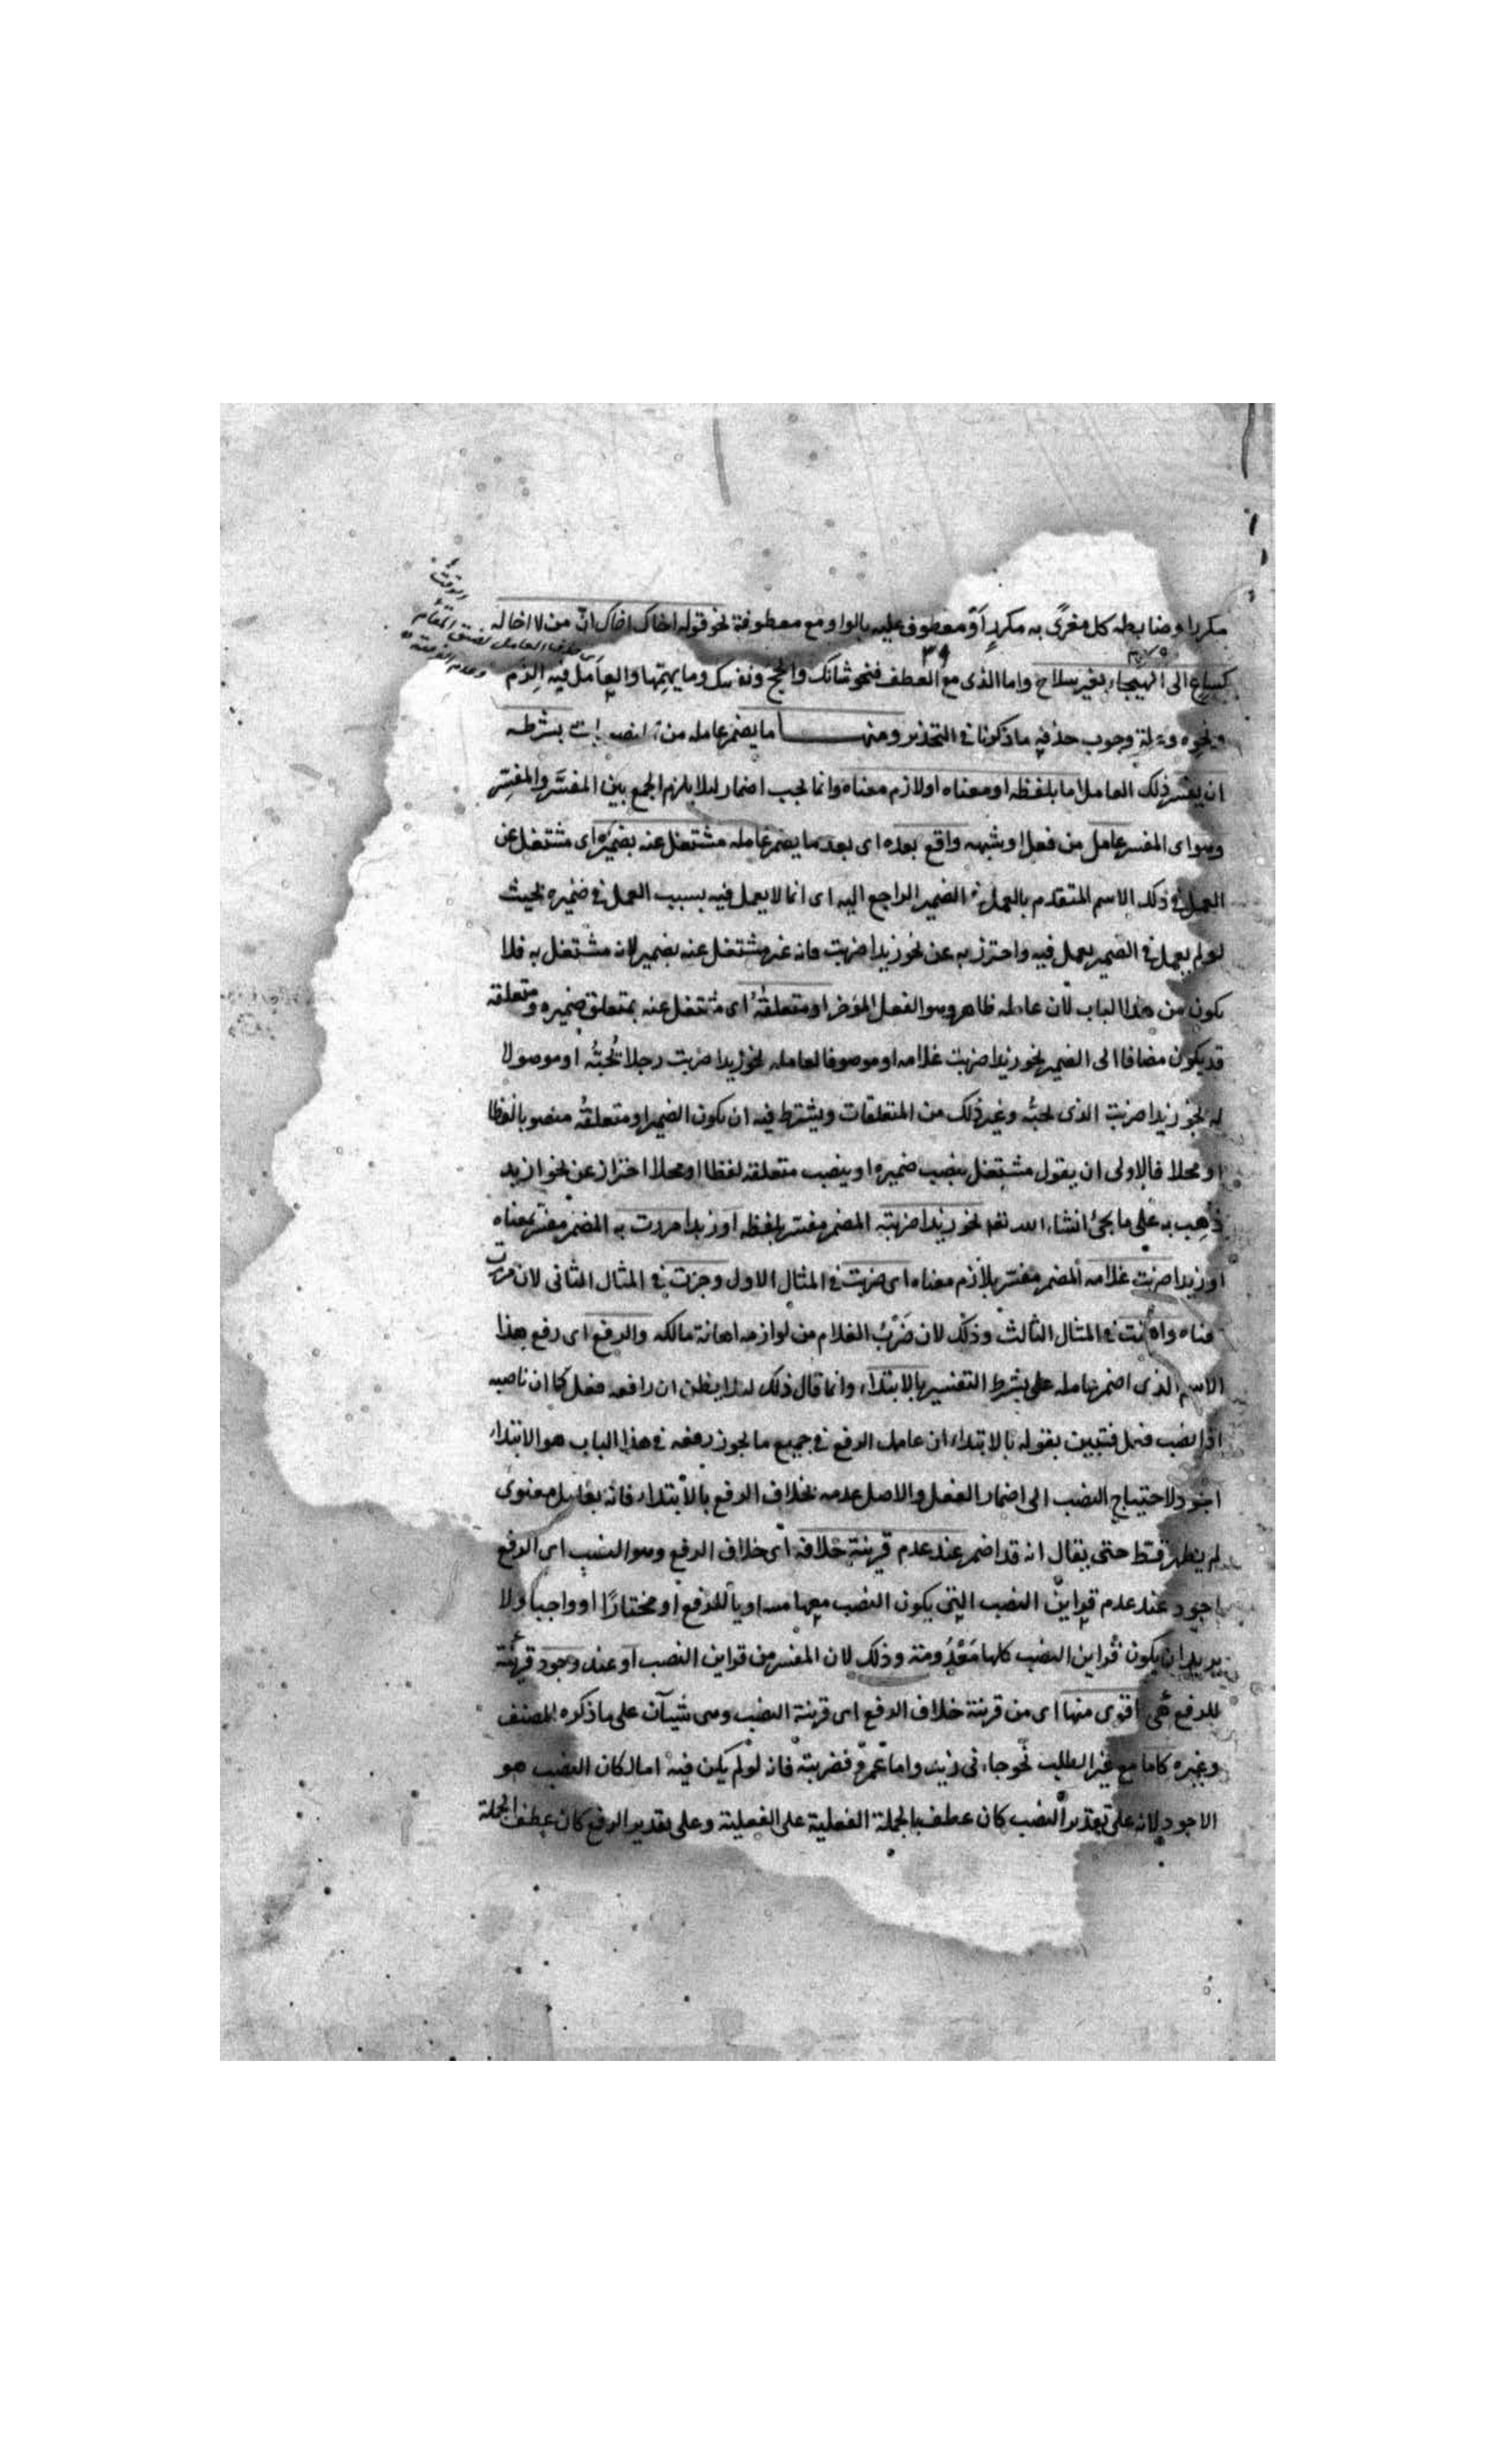 مكررا وضابطه كل مغرى به مكرر او معطوف عليه بالواو مع معطوفة نحو قوله اخاك اخاك ان من لا اخا له
كساع الى الهيجاء بغير سلاح واما الذى مع العطف فنحو شانك والحج ونفسك وما يهمها والعامل فيه الزم
ونحوه وعلة وجوب حذفه ما ذكرنا فى التحذير ومنها ما يضمر عامله من بشرطـه
ان يفسر ذلك العامل اما بلفظه او معناه او لازم معناه وانما يجب اضمار لئلا يلزم الجمع بين المفسَّر والمفسِّر
وهو اى المفسر عامل من فعل او شبهه واقع بعده اى بعد ما يضمر عامله مشتغل عنه بضميره اى مشتغل عن
العمل فى ذلك الاسم المتقدم بالعمل فى الضمير الراجع اليه اى انما لا يعمل فيه بسبب العمل فى ضميره بحيث
لو لم يعمل فى الضمير يعمل فيه واحترز به عن نحو زيدا ضربت فانه غير مشتغل عنه بضمير لانه مشتغل به فلا
يكون من هذا الباب لان عامله ظاهر وهو الفعل المؤخر او متعلقه اى مشتغل عنه بمتعلق ضميره ومتعلقه
قد يكون مضافا الى الضمير نحو زيدا ضربت غلامه او موصوفا لعامله نحو زيدا ضربت رجلا يُحبُّه او موصولا
له نحو زيدا ضربت الذى يحبُّه وغير ذلك من المتعلقات ويشترط فيه ان يكون الضمير او متعلقُه منصوبا لفظا
او محلا فالاولى ان يقول مشتغل بنصب ضميره او ينصب متعلقه لفظا او محلا احتراز عن نحو ازيد
ذُهِب به على ما يجئ انشاء الله تعا نحو زيدا ضربته المضمر مفسر بلفظه او زيدا مررت به المضمر مفسر بمعناه
او زيدا ضربت غلامه المضمر مفسر بلازم معناه اى ضربت فى المثال الاول وجزت فى المثال الثانى لان مررت
معناه واهنت فى المثال الثالث وذلك لان ضَرْبُ الغلام من لوازمه اهانة مالكه والرفع اى رفع هذا
الاسم الذى اضمر عامله على شرط التفسير بالابتداء وانما قال ذلك لئلا يظن ان رافعه فعل كما ان ناصبه
اذا نصب فعل فتبين بقوله بالابتداء ان عامل الرفع فى جميع ما يجوز رفعه فى هذا الباب هو الابتداء
اجود لاحتياج النصب الى اضمار الفعل والاصل عدمه بخلاف الرفع بالابتداء فانه بعامل معنوى
لم يظهر قط حتى يقال انه قد اضمر عند عدم قرينة خلافه اى خلاف الرفع وهو النصب اى الرفع
اجود عند عدم قراين النصب التى يكون النصب معها مساويا للرفع او مختارًا او واجبا ولا
يريد ان يكون قراين النصب كلها مَعْدُومة وذلك لان المفسر من قراين النصب او عند وجود قرينة
للرفع هى اقوى منها اى من قرينة خلاف الرفع اى قرينة النصب وهى شيآن على ما ذكره المصنف
وغيره كاما مع غير الطلب نحو جاءنى زيد واما عمرو فضربته فانه لو لم يكن فيه اما لكان النصب هو
الاجود لانه على تقدير النصب كان عطف بالجملة الفعلية على الفعلية وعلى تقدير الرفع كان عطف الجملة